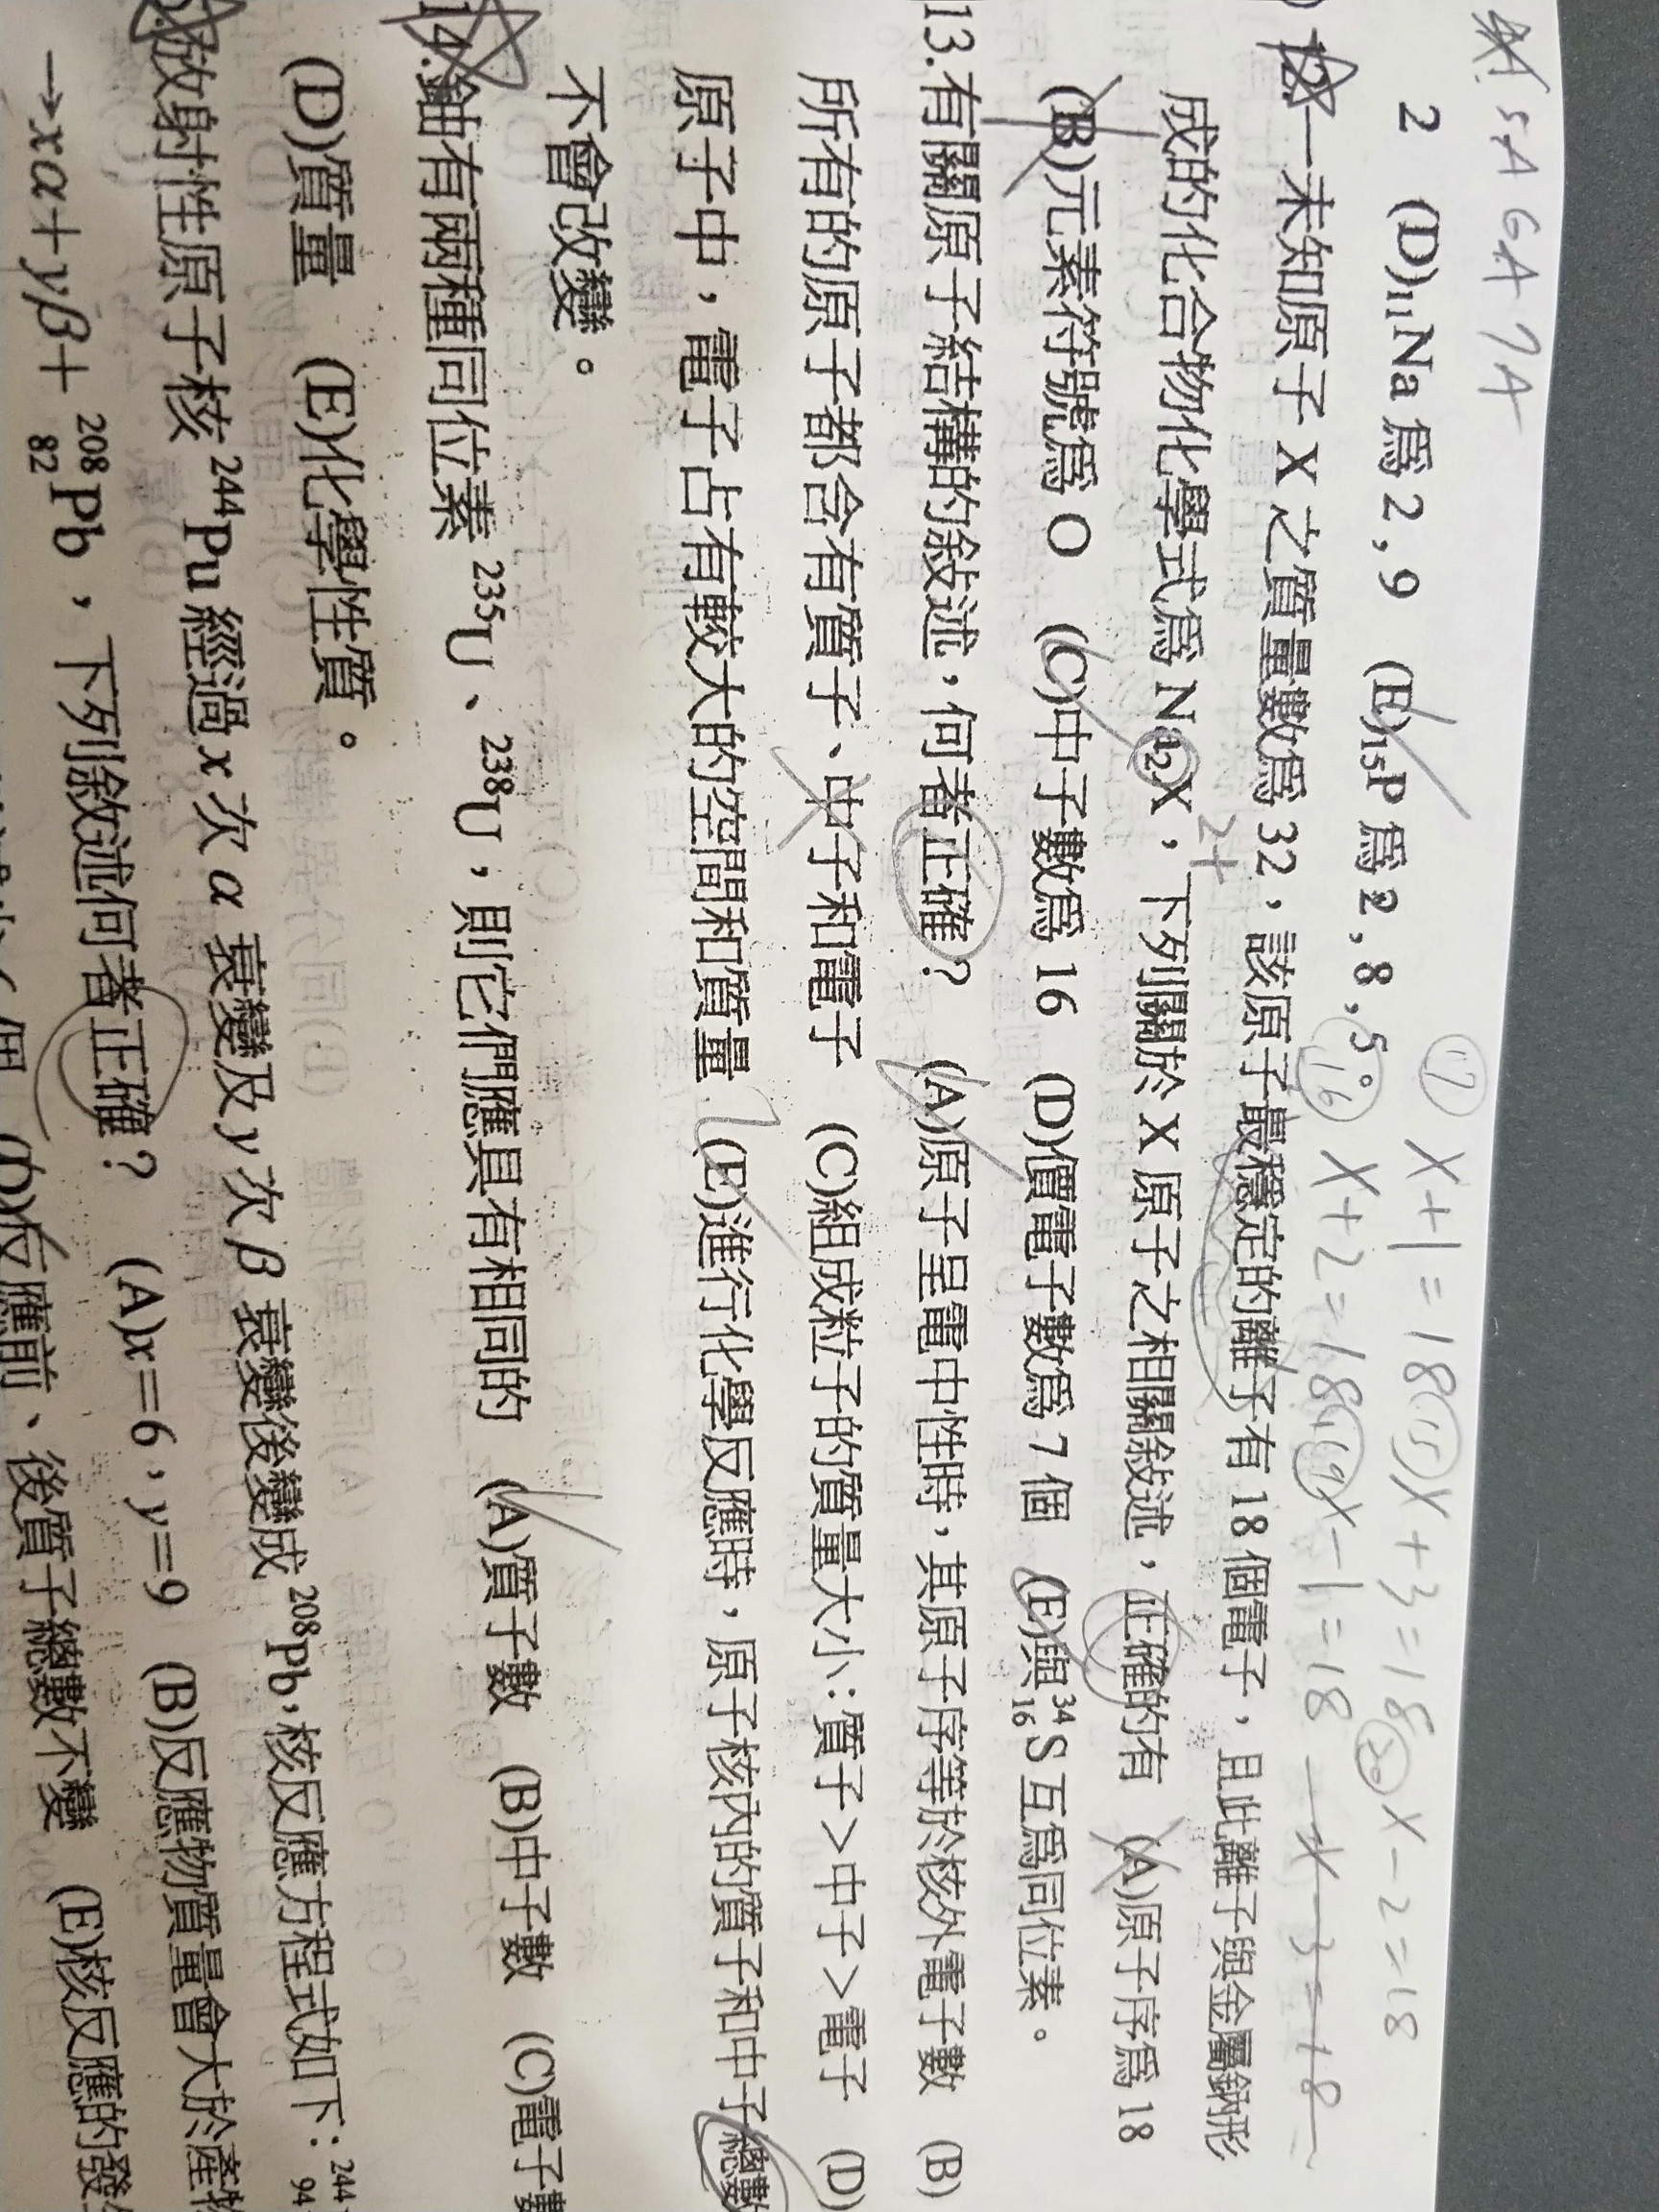 5A 6A 7A
⑰ X+1=18 ⑮ X+3=18 ⑳ X-2=18
2 (D)₁₁Na 為 2,9 (E)₁₅P 為 2,8,5。
⑯ X+2=18 ⑲ X-1=18 X-3=18
12.一未知原子 X 之質量數為 32,該原子最穩定的離子有 18 個電子,且此離子與金屬鈉形
2+
成的化合物化學式為 Na₂X,下列關於 X 原子之相關敘述,正確的有 (A)原子序為 18
(B)元素符號為 O (C)中子數為 16 (D)價電子數為 7 個 (E)與³⁴₁₆S 互為同位素。
13.有關原子結構的敘述,何者正確? (A)原子呈電中性時,其原子序等於核外電子數 (B)
所有的原子都含有質子、中子和電子 (C)組成粒子的質量大小:質子>中子>電子 (D)
原子中,電子占有較大的空間和質量 (E)進行化學反應時,原子核內的質子和中子總數
不會改變。
14.鈾有兩種同位素 ²³⁵U、²³⁸U,則它們應具有相同的 (A)質子數 (B)中子數 (C)電子數
(D)質量 (E)化學性質。
放射性原子核 ²⁴⁴Pu 經過 x 次 α 衰變及 y 次 β 衰變後變成 ²⁰⁸Pb,核反應方程式如下:²⁴⁴₉₄
→xα+yβ+²⁰⁸₈₂Pb,下列敘述何者正確? (A)x=6,y=9 (B)反應物質量會大於產物
(D)反應前、後質子總數不變 (E)核反應的發生